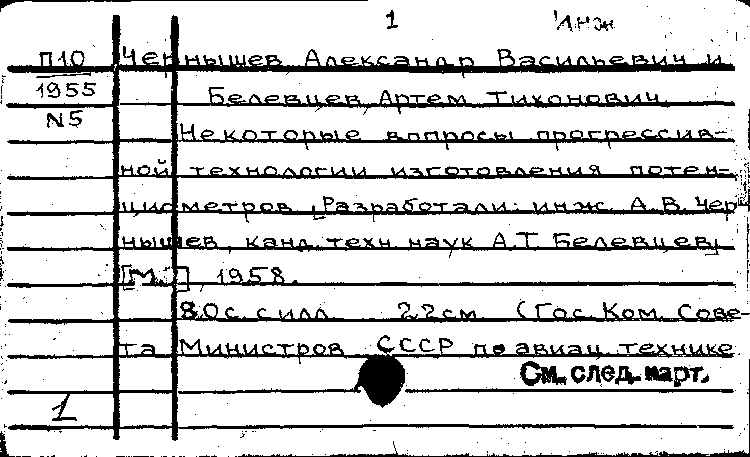 1 Инж
П10 Чернышев, Александр Васильевич и
1955 Белевцев, Артем Тихонович.
N5 Некоторые вопросы прогрессив-
ной технологии изготовления потен-
циометров. [Разработали: инж. А.В. Чер-
нышев, канд. техн. наук А.Т. Белевцев]
[М.], 1958.
80с. с илл. 22см. (Гос. Ком. Сове-
та Министров СССР по авиац. технике
См. след. карт.
1